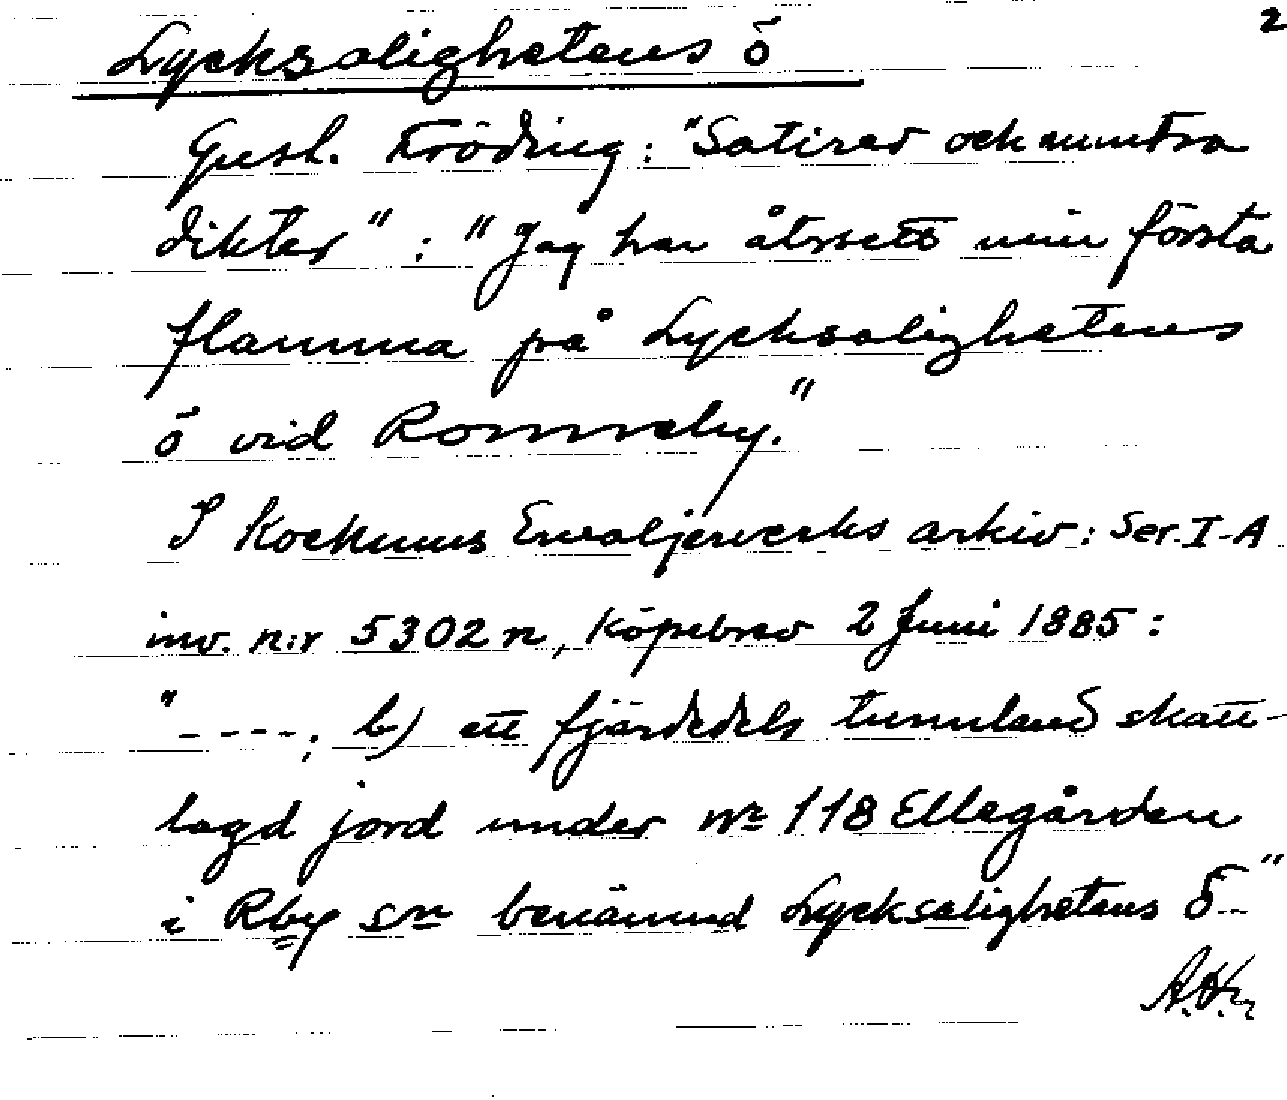 2
Lycksalighetens ö
Gust. Fröding: "Satirer och muntra
dikter" : "Jag har återsett min första
flamma på Lycksalighetens
ö vid Ronneby."
I Kockums Emaljerverks arkiv: Ser. I-A
inv. n:r 5302 n, Köpebrev 2 Juni 1885:
"----; b) ett fjärdedels tunnland skatt-
lagd jord under No 118 Ellegården
i Rby sn benämnd Lycksalighetens Ö--"